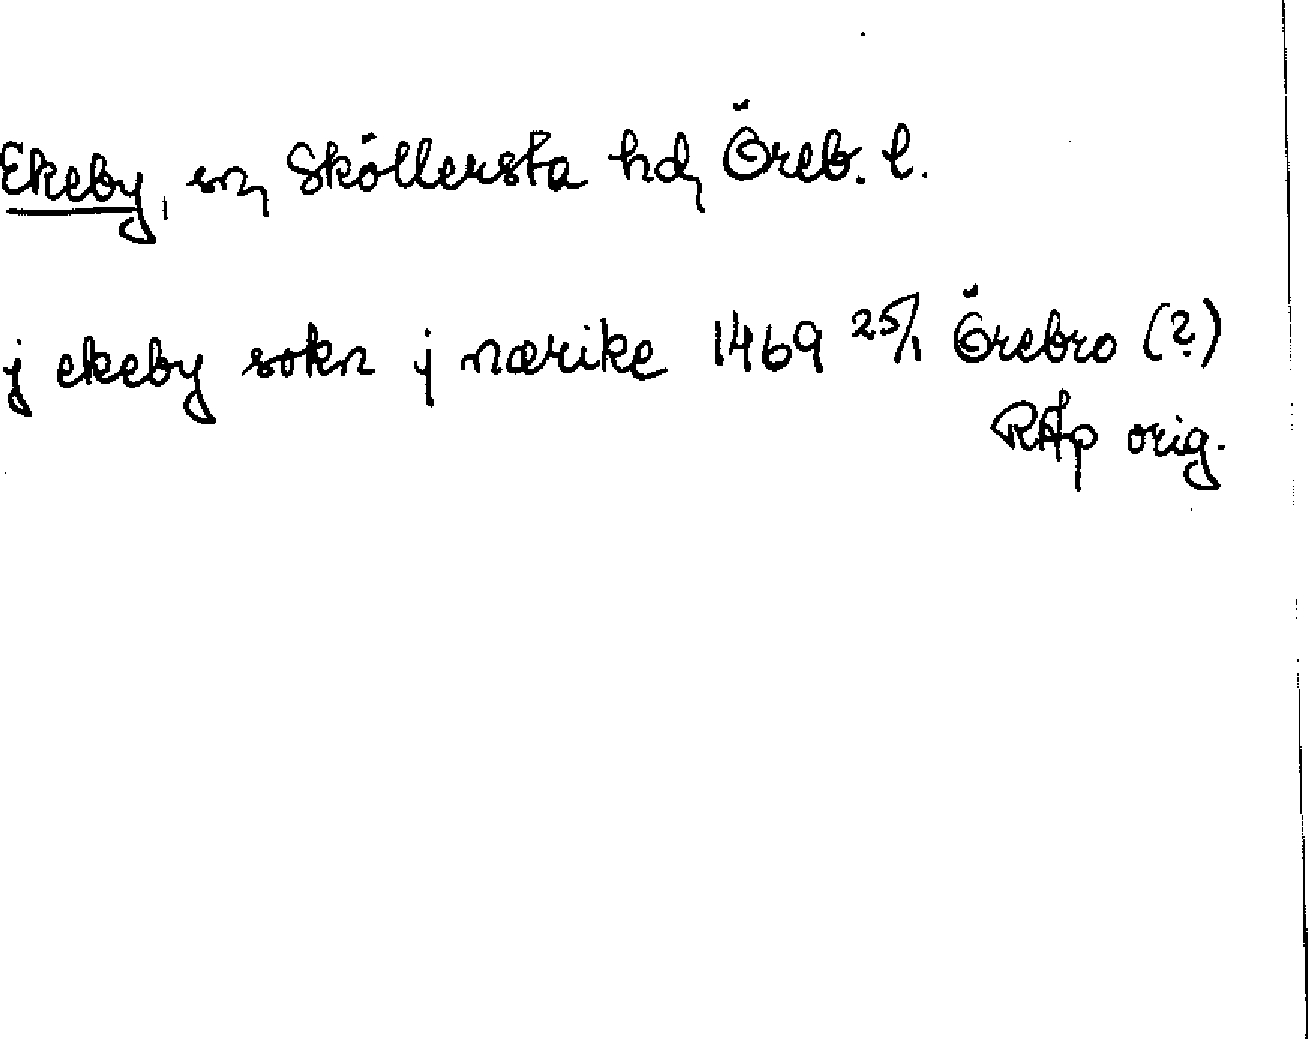 Ekeby, sn, Sköllersta hd, Öreb. l.
j ekeby sokn j nærike 1469 25/1 Örebro (?)
RAp orig.